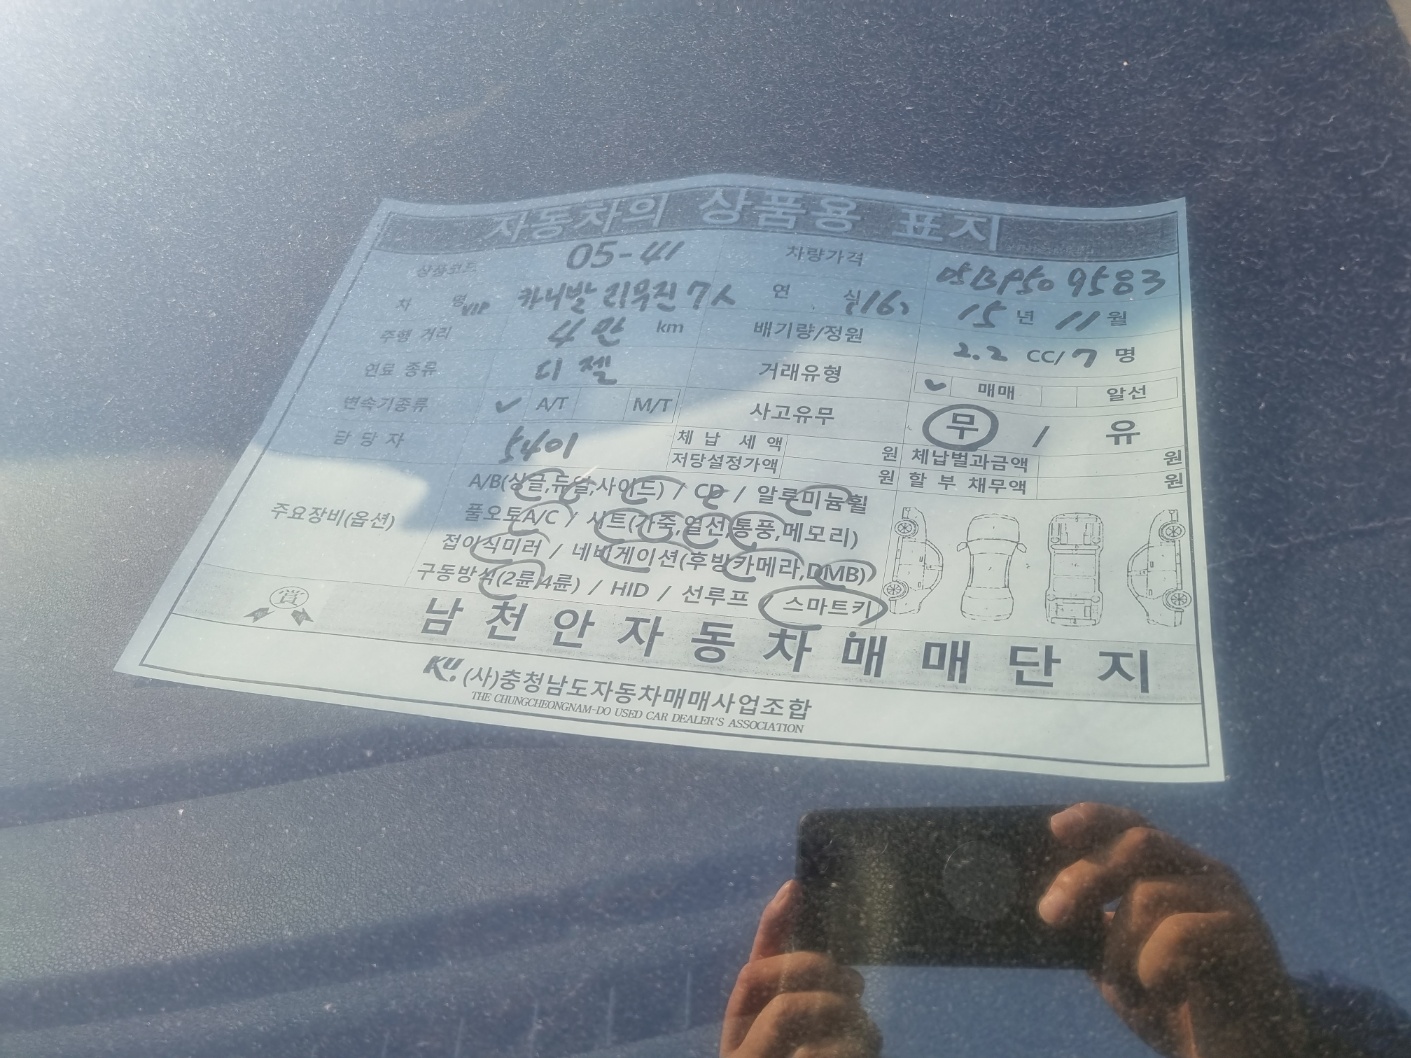 자동차의 상품용 표지
상품코드 05-41 차량가격
차 명 VIP 카니발 리무진 7人 연 식 (16) 15 년 11 월
주행 거리 4만 km 배기량/정원 2.2 CC/ 7 명
연료 종유 디젤 거래유형 매매 알선
변속기종류 A/T M/T 사고유무 무 / 유
담 당 자 체 납 세 액 원 체납벌과금액 원
저당설정가액 원 할 부 채무액 원
주요장비(옵션)
A/B(싱글,듀얼,사이드) / CD / 알루미늄휠
풀오토A/C / 시트(가죽,열선,통풍,메모리)
접이식미러 / 네비게이션(후방카메라,DMB)
구동방식(2륜,4륜) / HID / 선루프 스마트키
賞
남천안자동차매매단지
KU. (사)충청남도자동차매매사업조합
THE CHUNGCHEONGNAM-DO USED CAR DEALER'S ASSOCIATION